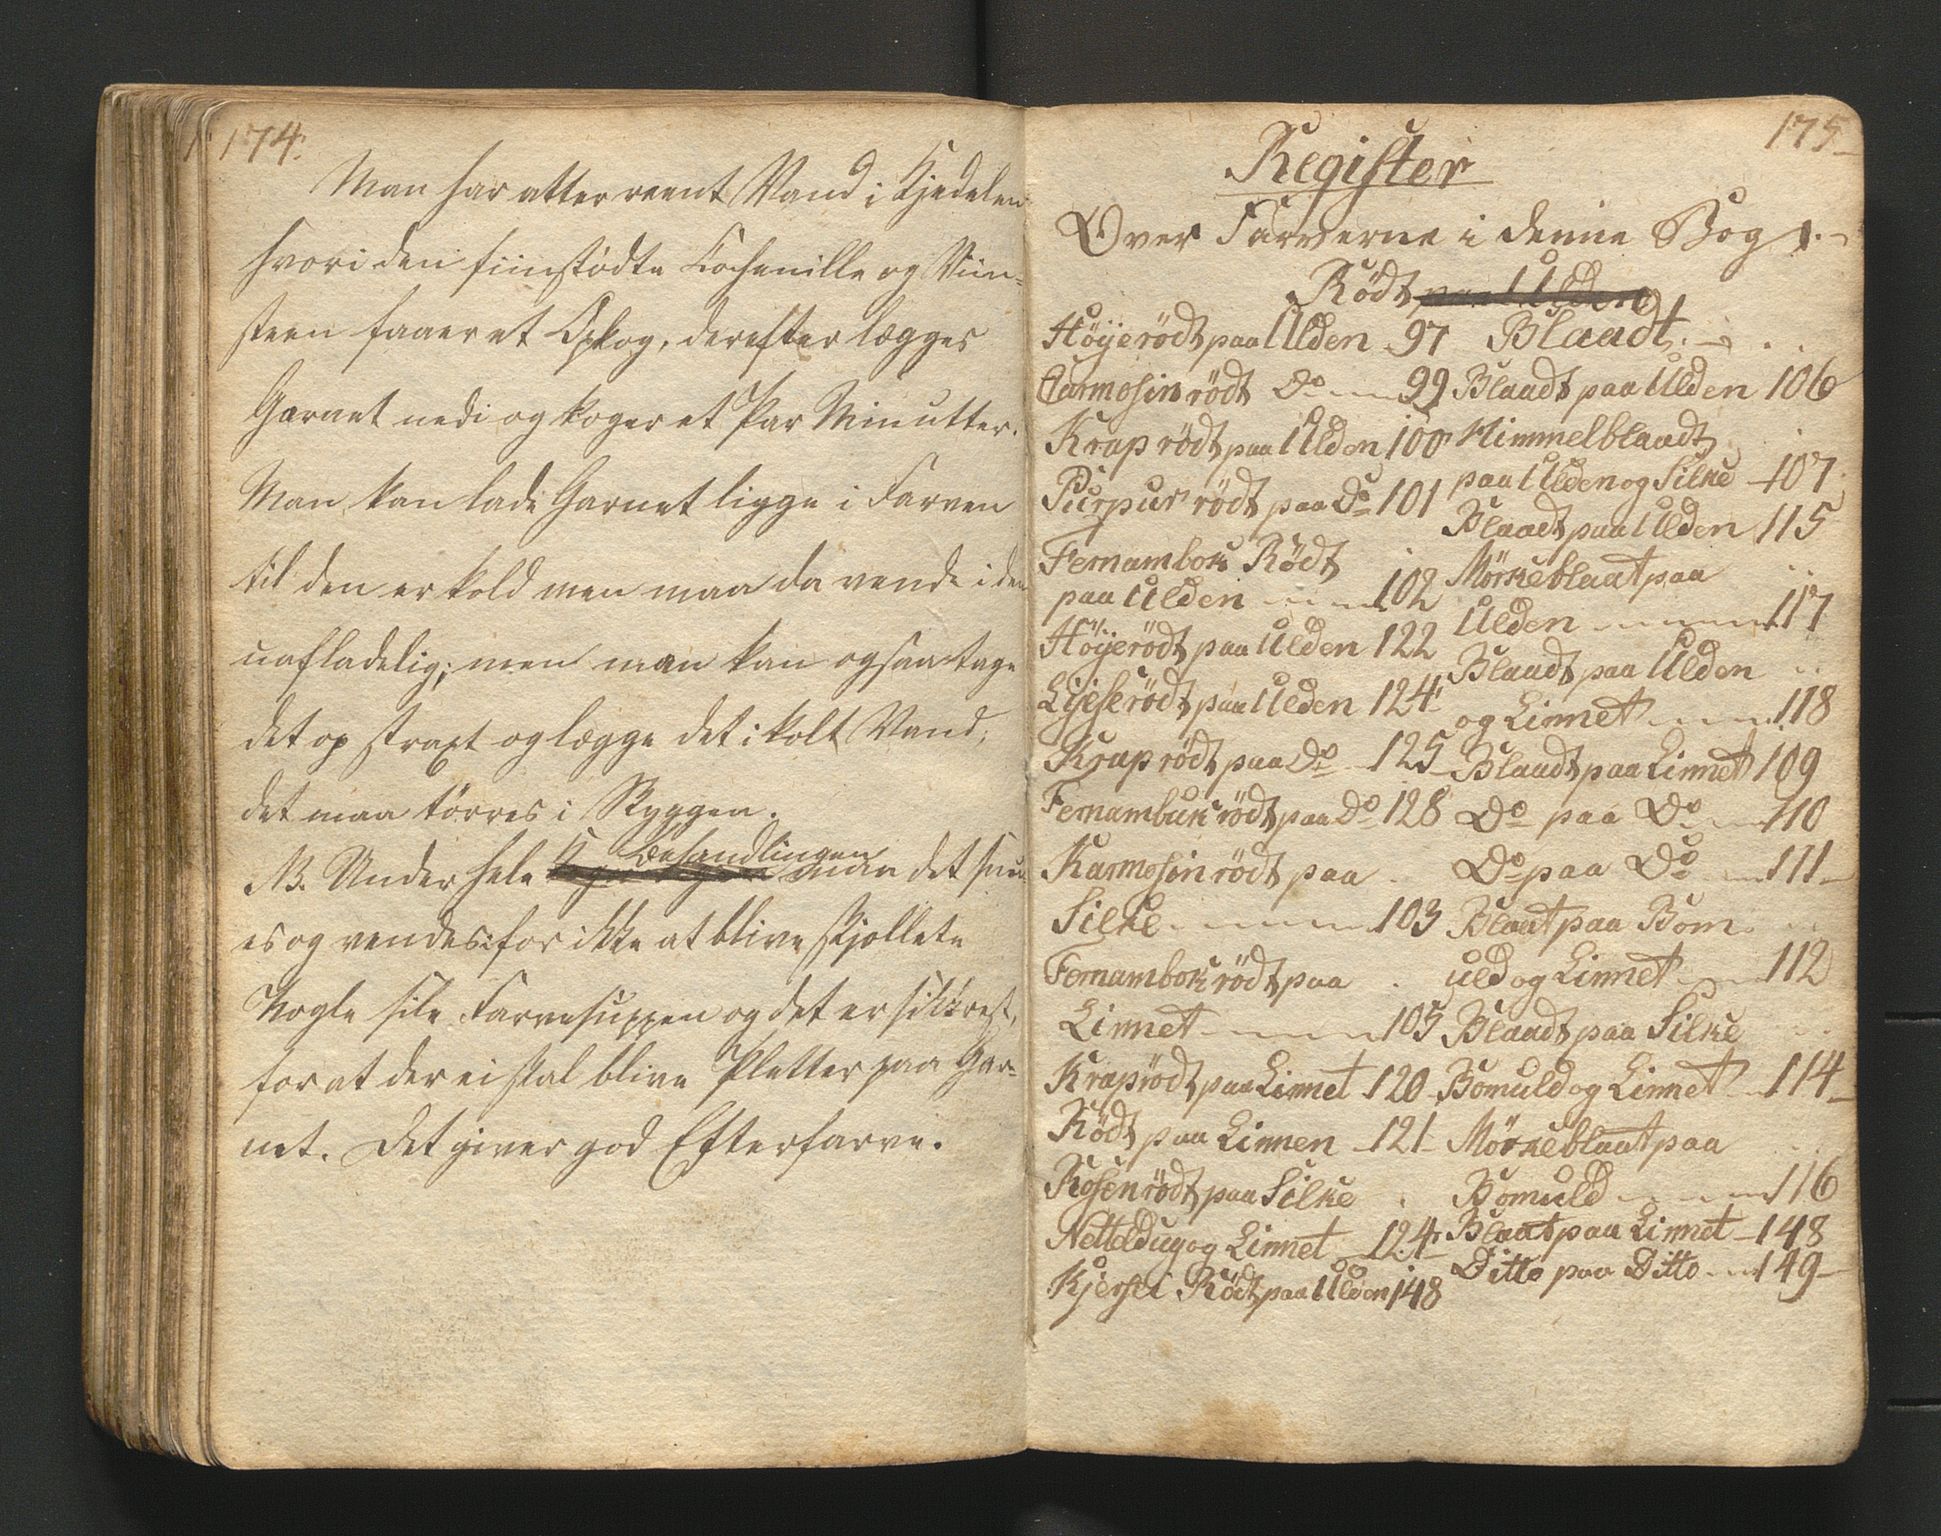 174.
Man har atter reent Vand i Kjedelen
hvori den fiinstødte Cochenille og Viin-
steen faaer et Opkog, derefter lægges
Garnet nedi og koger et Par Minutter.
Man kan lade Garnet ligge i Farven
til den er kold men maa da vende i den
uafladelig; men man kan ogsaa tage
det op straxt og lægge det i kolt Vand,
det maa törres i Skyggen.
Behandlingen
NB. Under hele maa det snu
es og vendes for ikke at blive skjollete
Nogle sile Farvesuppen og det er sikkrest,
for at der ei skal blive Pletter paa Gar-
net. Det giver god Efterfarve.
175
Register
Over Farverne i denne Bog
Rödt paa Ulden
Höyerödt paa Ulden 97
Carmosin rödt Do 99
Krap rödt paa Ulden 100
Purpur rödt paa Do 101
Fernambok Rödt
paa Ulden 102
Höyerödt paa Ulden 122
Lyserödt paa Ulden 124
Krap rödt paa Do 125
Fernambuk rödt paa Do 128
Karmosin rödt paa
Silke 103
Fernambok rödt paa
Linnet 105
Kraprödt paa Linnet 120
Rödt paa Linnen 121
Rosenrödt paa Silke
Netteldug og Linnet 124
Kjersei Rödt paa Ulden 148
Blaadt
Blaadt paa Ulden 106
Himmelblaadt
paa Ulden og Silke 107
Blaadt paa Ulden 115
Mörkeblaat paa
Ulden 117
Blaudt paa Ulden
og Linnet 118
Blaudt paa Linnet 109
Do paa Do 110
Do paa Do 111
Blaat paa Bom
uld og Linnet 112
Blaadt paa Silke
Bomuld og Linnet 114
Mörkeblaat paa
Bomuld 116
Blaat paa Linnet 148
Ditto paa Ditto 149